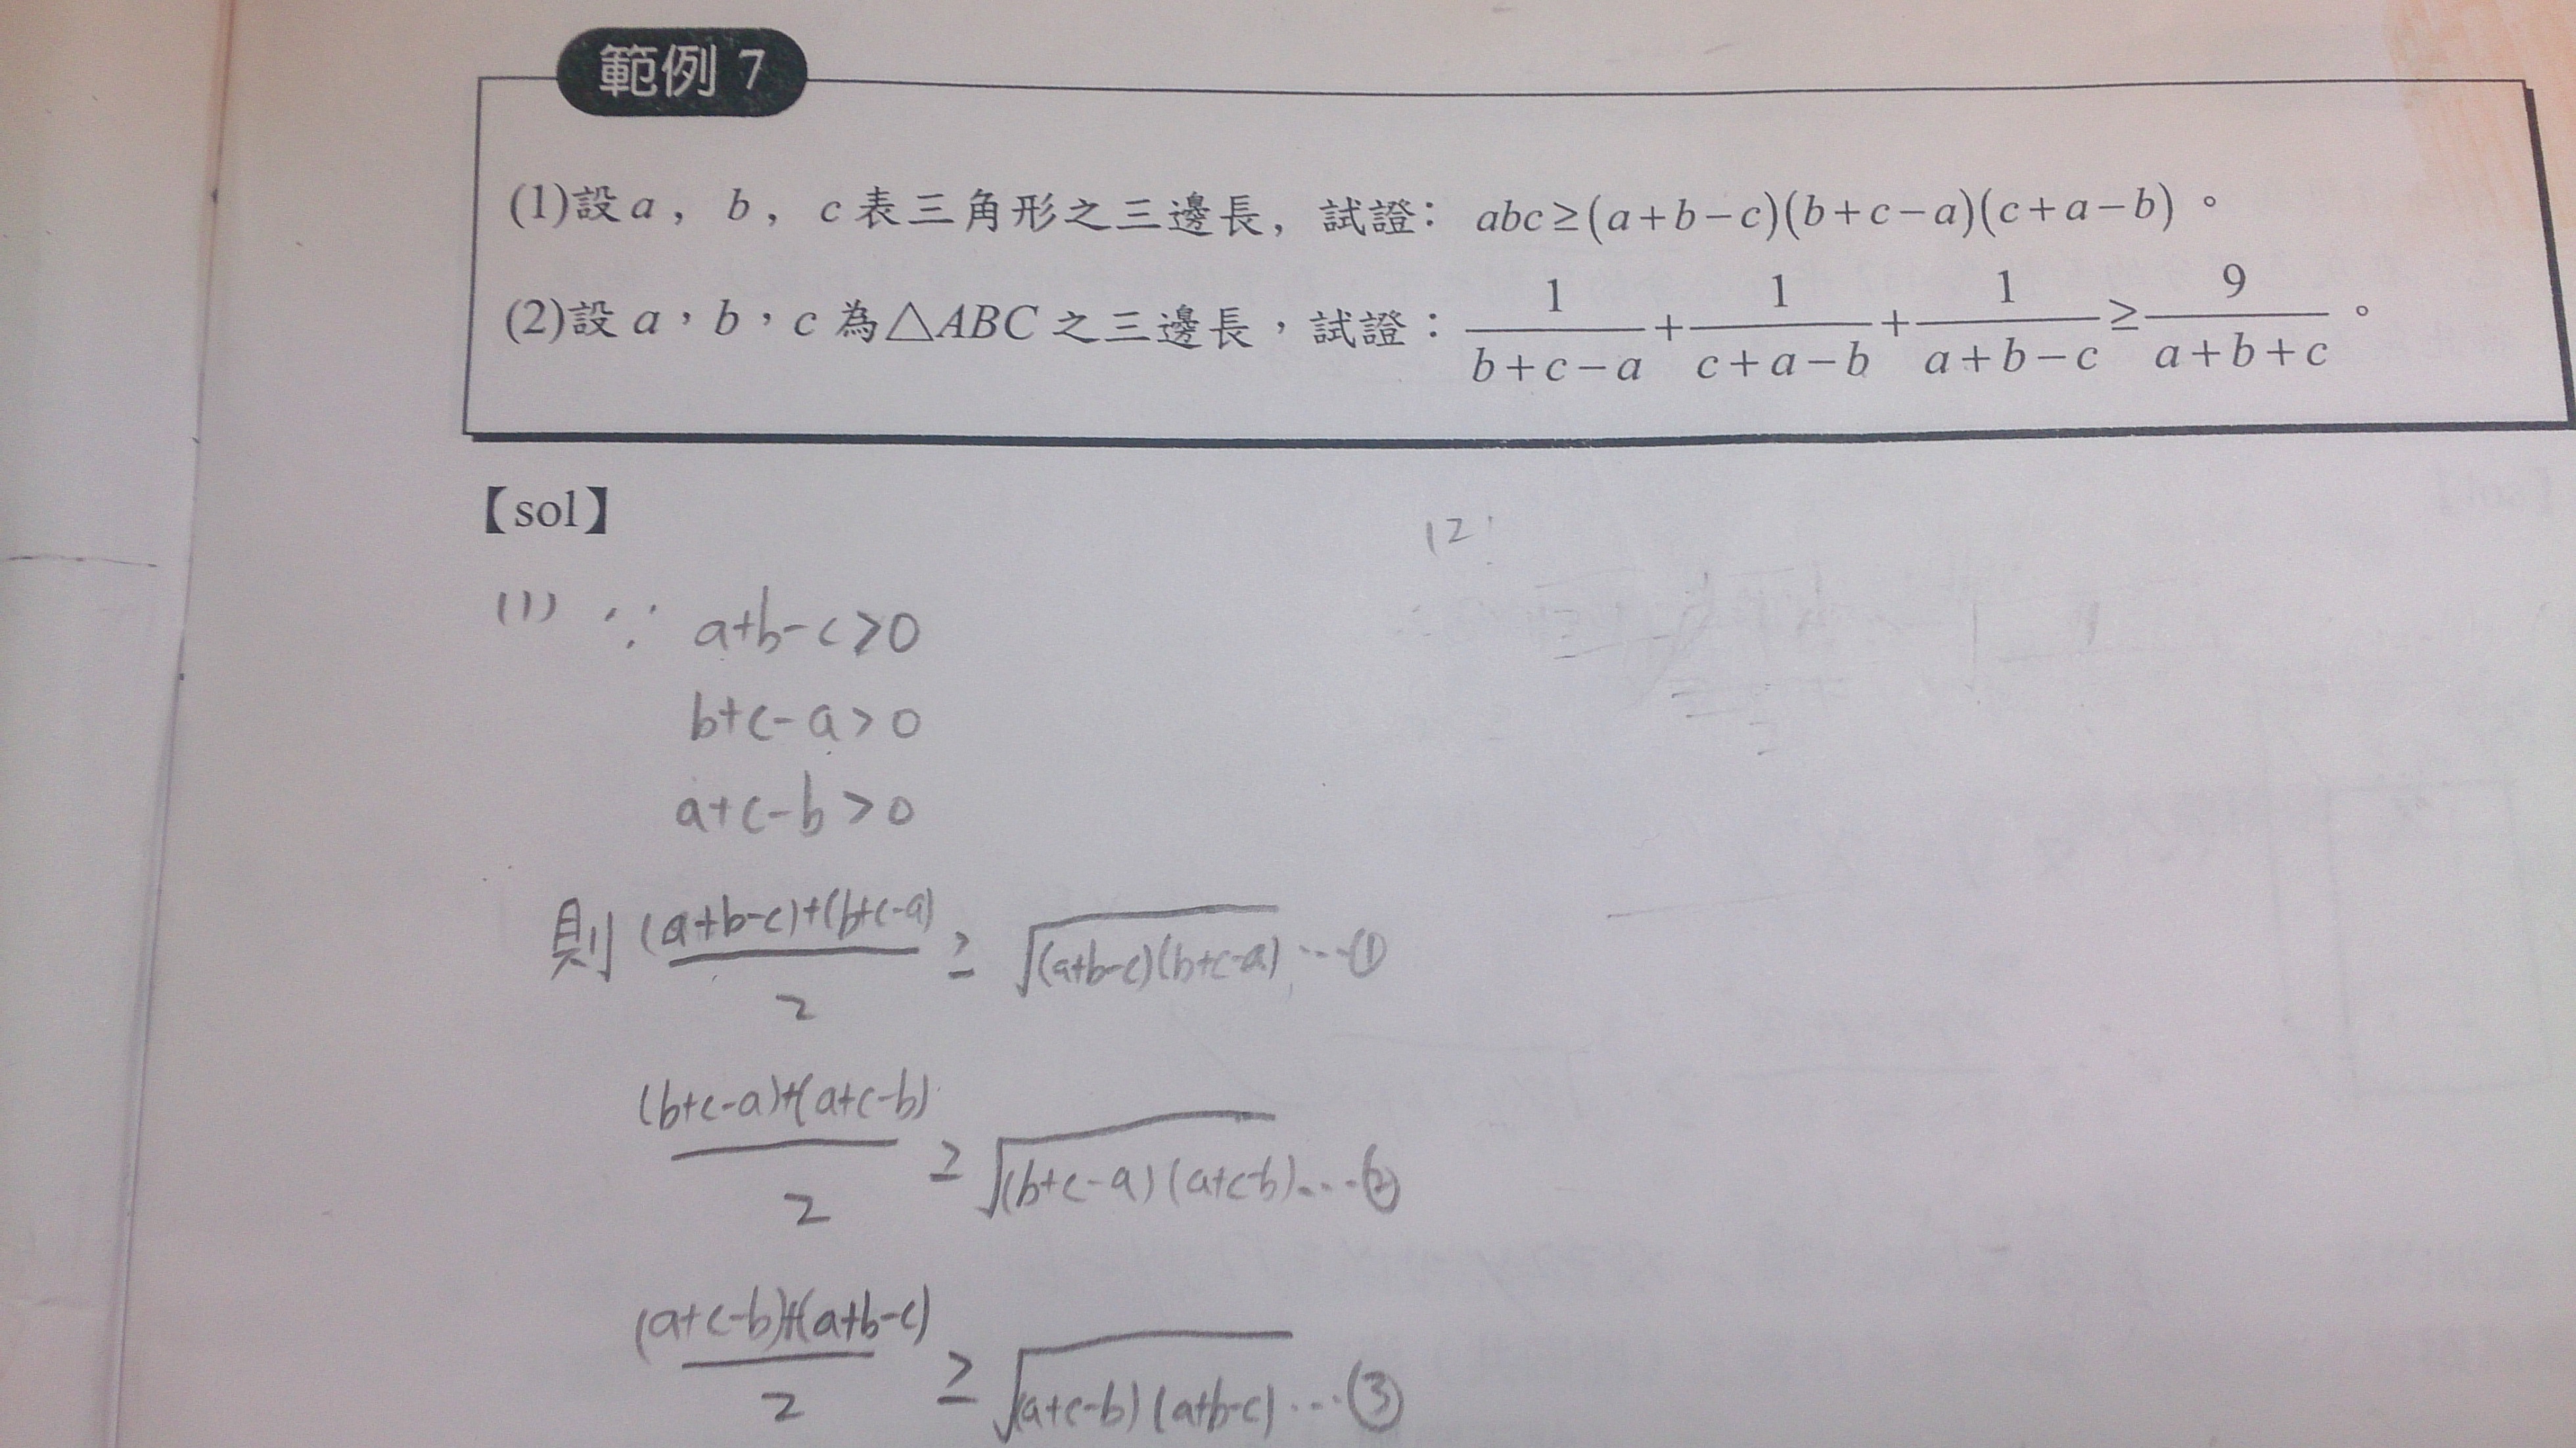 範例 7
(1)設a，b，c表三角形之三邊長，試證：abc≥(a+b−c)(b+c−a)(c+a−b)。
(2)設a，b，c為△ABC之三邊長，試證：1/(b+c−a)+1/(c+a−b)+1/(a+b−c)≥9/(a+b+c)。
【sol】
12'
(1) ∵ a+b-c>0
b+c-a>0
a+c-b>0
則 ((a+b-c)+(b+c-a))/2 ≥ √(a+b-c)(b+c-a) ...①
((b+c-a)+(a+c-b))/2 ≥ √(b+c-a)(a+c-b) ...②
((a+c-b)+(a+b-c))/2 ≥ √(a+c-b)(a+b-c) ...③